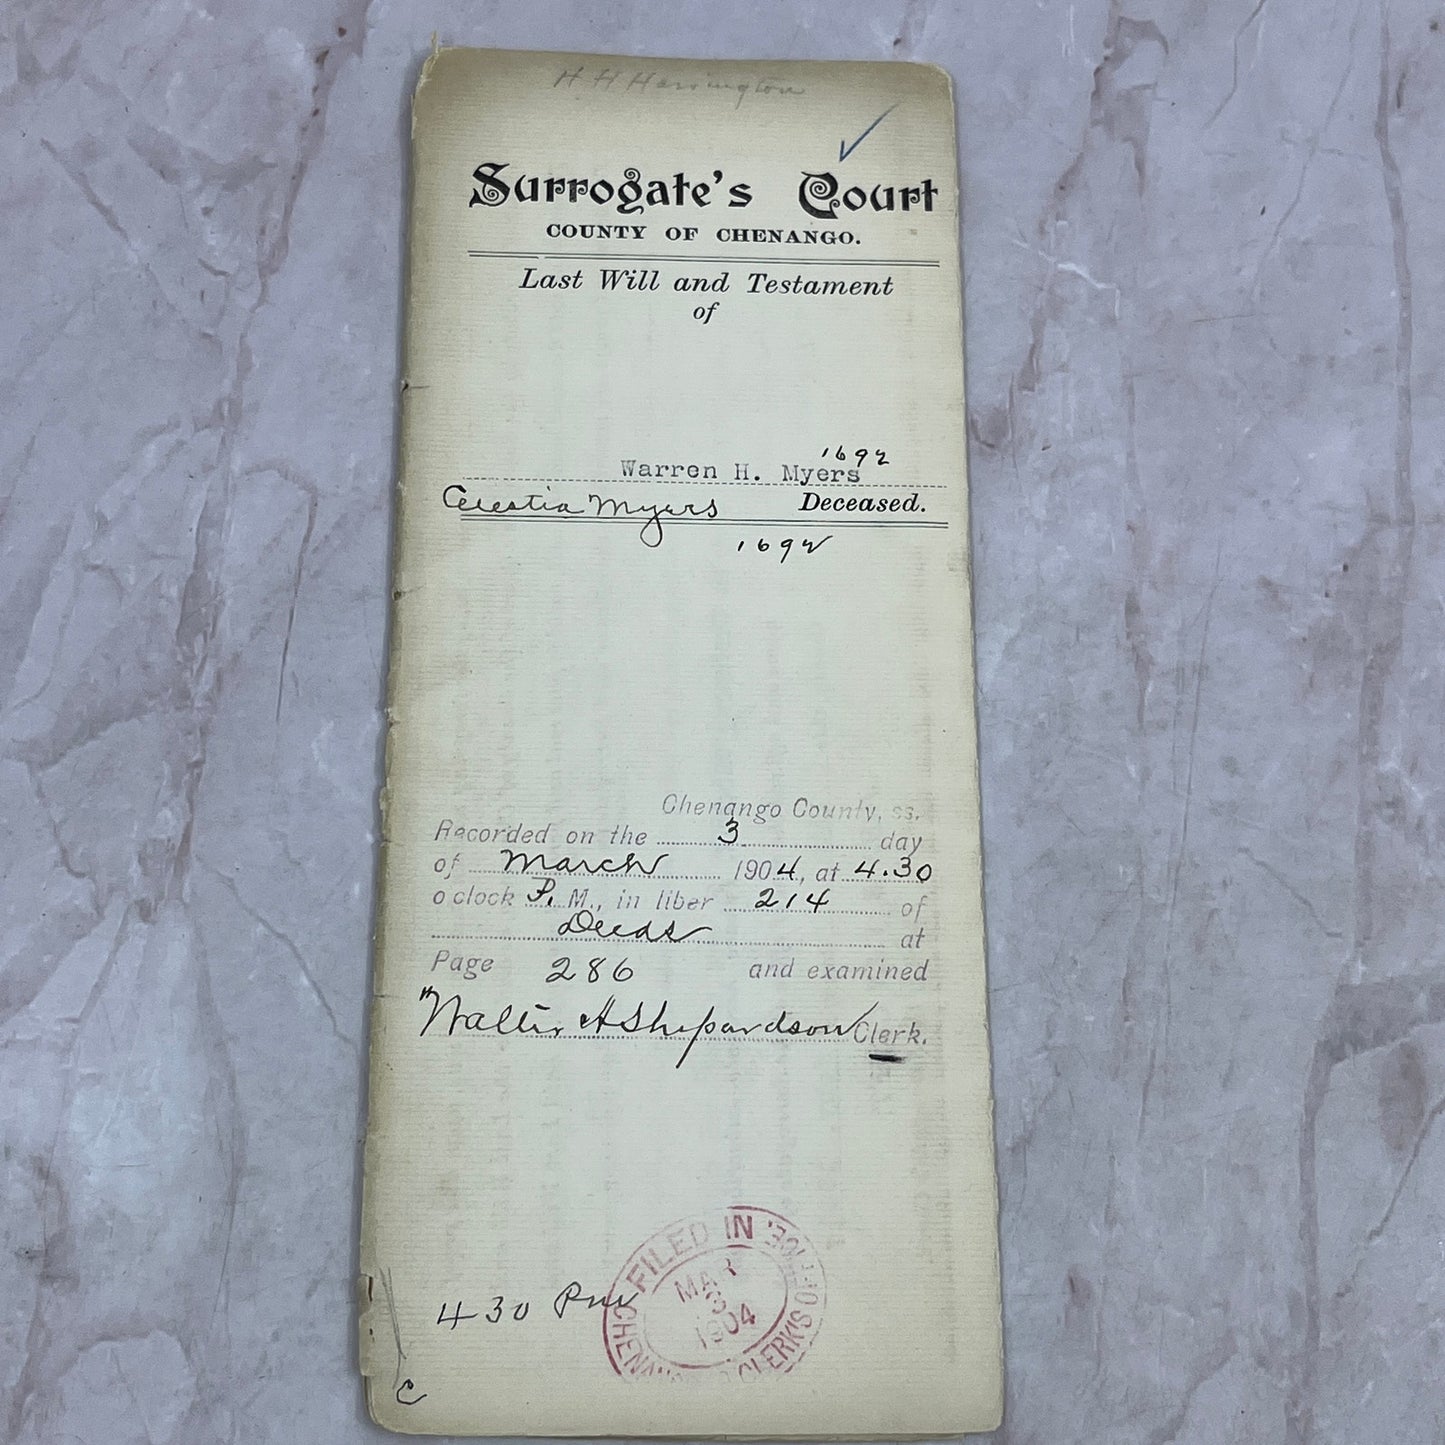 H H Harrington
Surrogate's Court
COUNTY OF CHENANGO.
Last Will and Testament
of
1692
Warren H. Myers
Celestia Myers Deceased.
1692
Chenango County, ss.
Recorded on the 3 day
of March 1904, at 4.30
o'clock P. M., in liber 214 of
Deeds at
Page 286 and examined
Walter A Shepardson Clerk.
FILED IN
MAR
3
1904
CHENANGO CO. CLERK'S OFFICE.
4 30 Pm
C